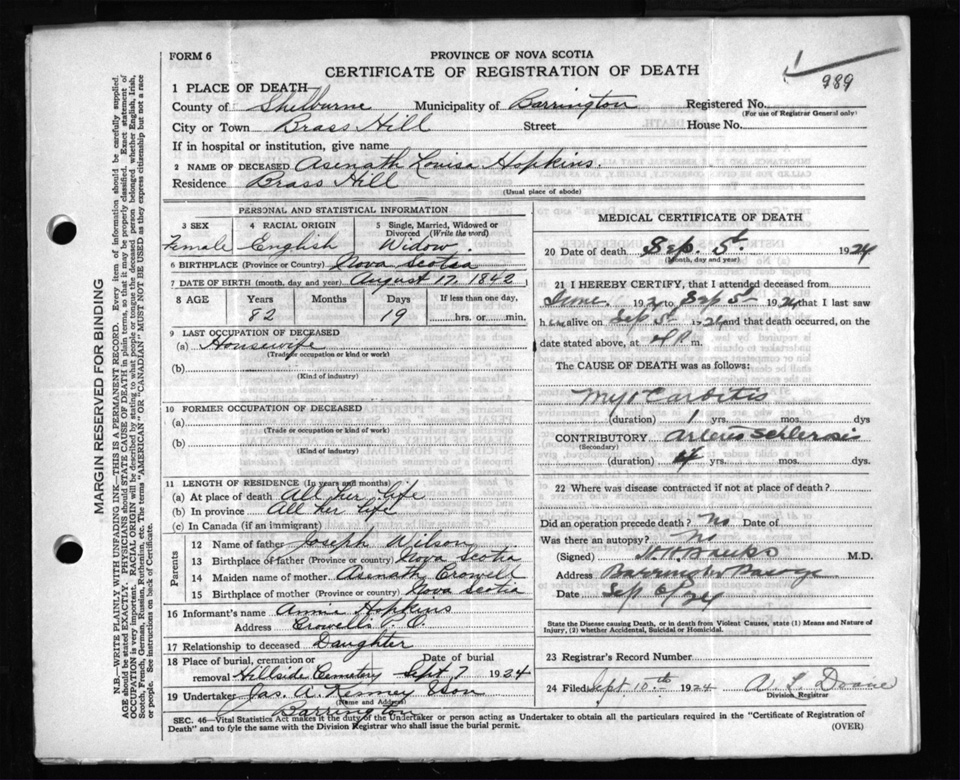 FORM 6
PROVINCE OF NOVA SCOTIA
CERTIFICATE OF REGISTRATION OF DEATH
989
1 PLACE OF DEATH
County of Shelburne Municipality of Barrington Registered No.
(For use of Registrar General only)
City or Town Brass Hill Street House No.
If in hospital or institution, give name
2 NAME OF DECEASED Asenath Louisa Hopkins.
Residence Brass Hill
(Usual place of abode)
PERSONAL AND STATISTICAL INFORMATION
3 SEX 4 RACIAL ORIGIN 5 Single, Married, Widowed or Divorced (Write the word)
Female English Widow
6 BIRTHPLACE (Province or Country) Nova Scotia
7 DATE OF BIRTH (month, day and year) August 17, 1842
8 AGE Years Months Days If less than one day,
82 19 hrs. or min.
9 LAST OCCUPATION OF DECEASED
(a) Housewife
(Trade or occupation or kind or work)
(b)
(Kind of industry)
10 FORMER OCCUPATION OF DECEASED
(a)
(Trade or occupation or kind of work)
(b)
(Kind of industry)
11 LENGTH OF RESIDENCE (In years and months)
(a) At place of death All her life
(b) In province All her life
(c) In Canada (if an immigrant)
Parents
12 Name of father Joseph Wilson
13 Birthplace of father (Province or Country) Nova Scotia
14 Maiden name of mother Asenath Crowell
15 Birthplace of mother (Province or country) Nova Scotia
16 Informant's name Annie Hopkins
Address Crowells P.O.
17 Relationship to deceased Daughter
18 Place of burial, cremation or removal Hillside Cemetery Date of burial Sept 7 1924
19 Undertaker Jas. A. Kenney & Son
(Name and Address)
Barrington
MEDICAL CERTIFICATE OF DEATH
20 Date of death Sep. 5th 1924
(Month, day and year)
21 I HEREBY CERTIFY, that I attended deceased from
June 1924 to Sep 5th 1924 that I last saw
h er alive on Sep 5th 1924 and that death occurred, on
date stated above, at P m.
The CAUSE OF DEATH was as follows:
Myo Carditis
(duration) 1 yrs. mos. dys
CONTRIBUTORY Arterio Schlerosis
(Secondary)
(duration) yrs. mos. dys.
22 Where was disease contracted if not at place of death?
Did an operation precede death? No Date of
Was there an autopsy? No
(Signed) Banks M.D.
Address Barrington Passage
Date Sep 6/24
State the Disease causing Death, or in death from Violent Causes, state (1) Means and Nature of Injury, (2) whether Accidental, Suicidal or Homicidal.
23 Registrar's Record Number
24 Filed Sept 10th 1924 W. L. Doane
Division Registrar
SEC. 46—Vital Statistics Act makes it the duty of the Undertaker or person acting as Undertaker to obtain all the particulars required in the "Certificate of Registration of
Death" and to fyle the same with the Division Registrar who shall issue the burial permit.
(OVER)
MARGIN RESERVED FOR BINDING
N.B.—WRITE PLAINLY WITH UNFADING INK—THIS IS A PERMANENT RECORD. Every item of information should be carefully supplied.
AGE should be stated EXACTLY. PHYSICIANS should STATE CAUSE OF DEATH in plain terms, so that it may be properly classified. Exact statement of
OCCUPATION is very important. RACIAL ORIGIN will be described by stating to what people or tongue the deceased person belonged whether English, Irish,
Scotch, French, German, Russian, Ruthenian, etc. The terms "AMERICAN" OR "CANADIAN" MUST NOT BE USED as they express citizenship but not a race
or people. See instructions on back of Certificate.